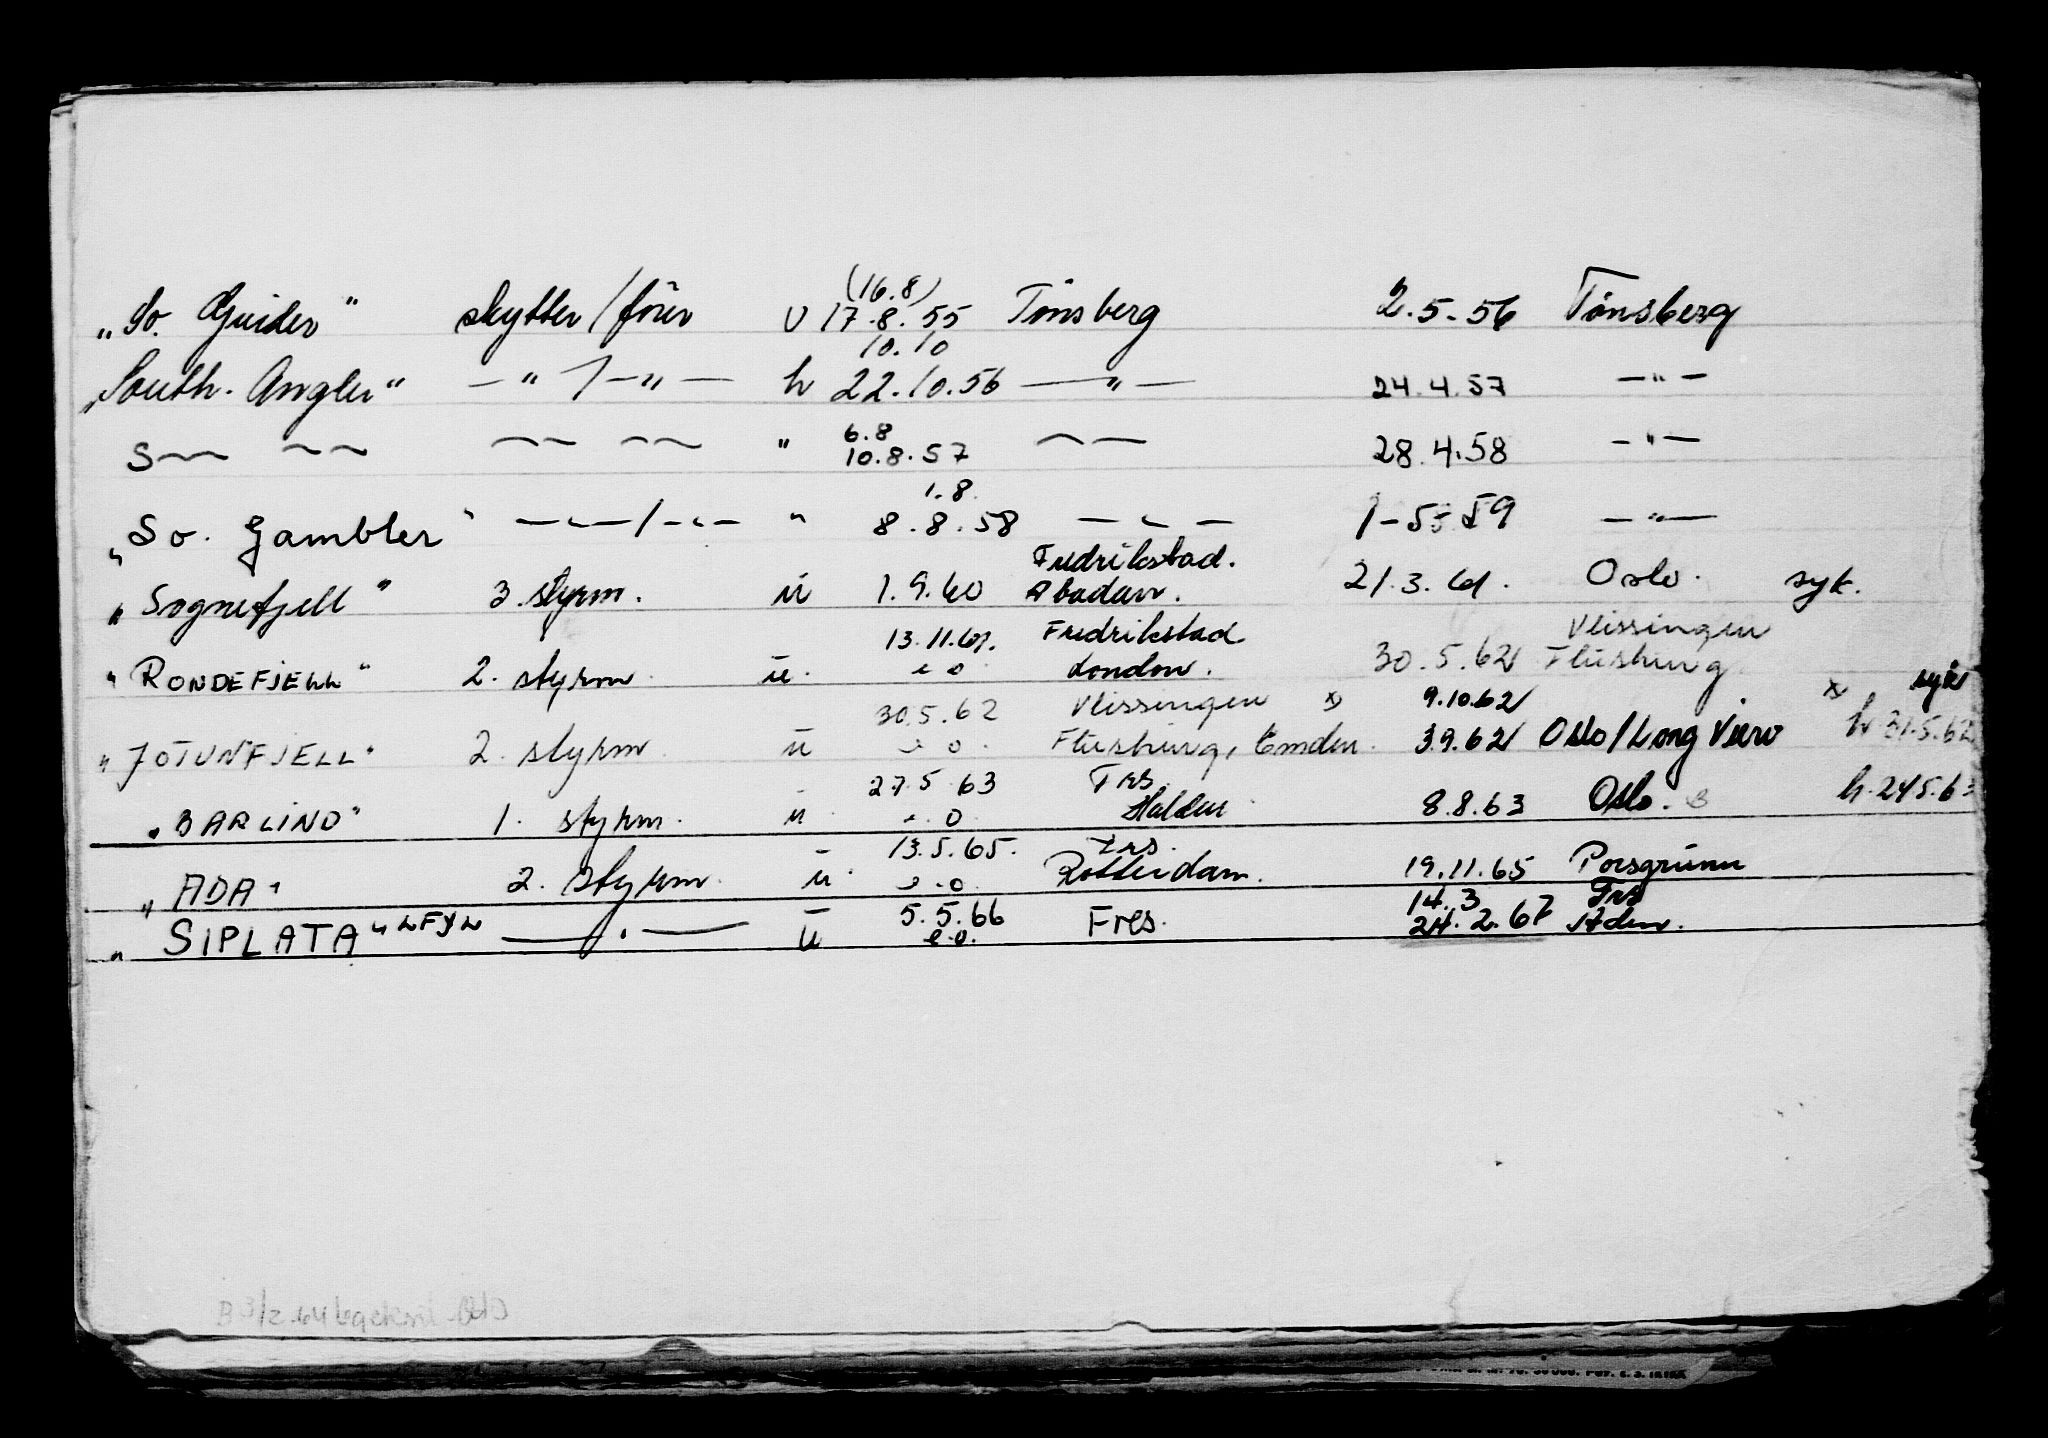 „So. Guider" skytter/fører U (16.8) 17.8.55 Tønsberg 2.5.56 Tønsberg
„South. Angler" — " / — " — h 10.10 22.10.56 — " — 24.4.57 — " —
S~~ ~~ ~~ ~~ " 6.8 10.8.57 ~ — 28.4.58 — " —
„So. Gambler" — " — / — " — " 1.8. 8.8.58 — " — 1-5-59 — " —
„Sognefjell" 3. styrm. u 1.9.60 Fredrikstad. Abadan. 21.3.61. Oslo. syk.
„RONDEFJELL" 2. styrm. u. 13.11.61. e o Fredrikstad London. 30.5.62 Vlissingen Flushing
„JOTUNFJELL" 2. styrm. u 30.5.62 e o. Vlissingen x Flushing, Emden. 9.10.62 3.9.62 Oslo/Long View x syk h 31.5.62
„BARLIND" 1. styrm. u 27.5.63 e. o. Frs. Halden 8.8.63 Oslo. h. 24.5.63
„ADA" 2. styrm. u. 13.5.65. e. o. Frs. Rotterdam. 19.11.65 Porsgrunn
„SIPLATA" LFYL — " — u 5.5.66 e.o. Fres. 14.3 24.2.67 Frs Aden.
B 3/2.64 Oslo